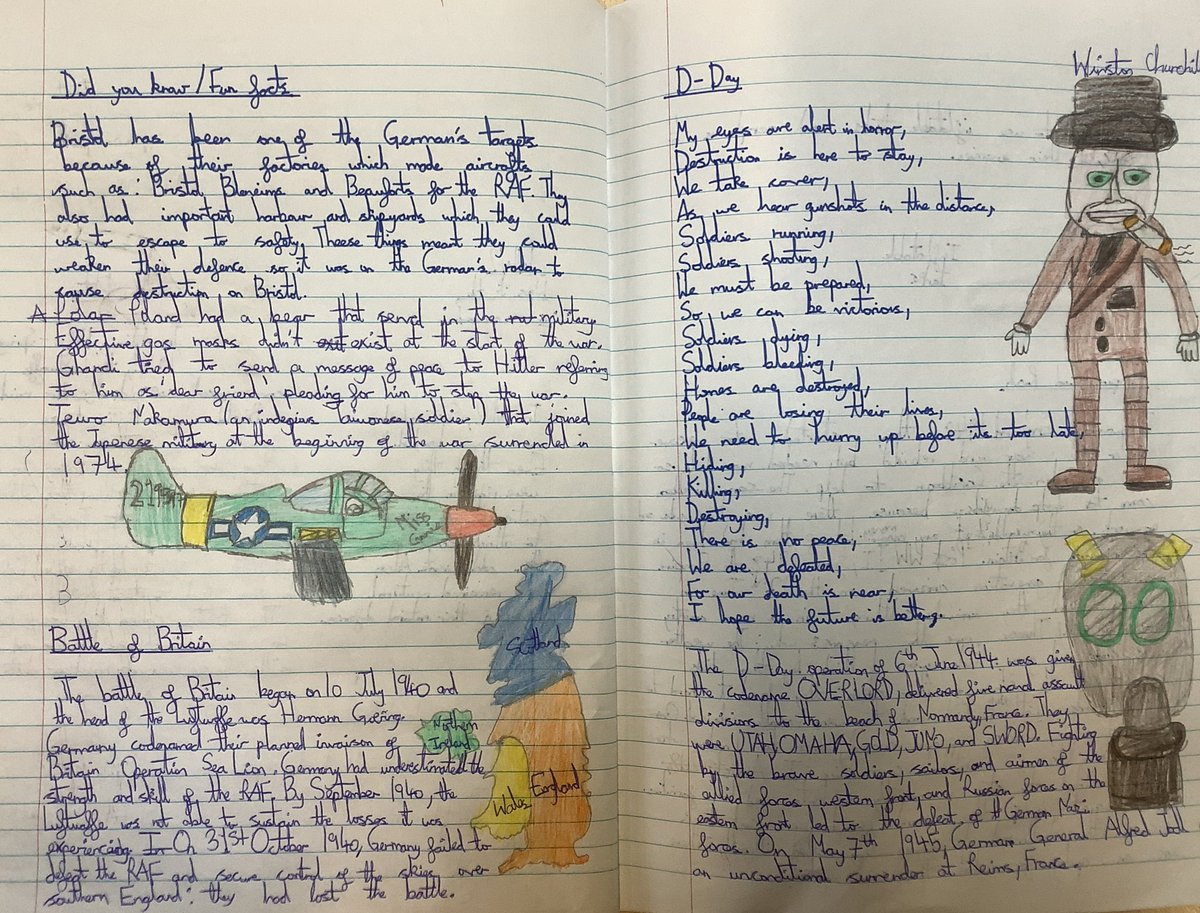 Did you know/Fun facts
Bristol has been one of the German's targets
because of their factories which made aircrafts
such as: Bristol Bleneims and Beauforts for the RAF. They
also had important harbour and shipyards which they could
use to escape to safety. Theese things meant they could
weaken their defence so it was on the German's radar to
cause destruction on Bristol.
Poland had a bear that served in the military.
Effective gas masks didn't exist at the start of the war.
Ghandi tried to send a message of peace to Hitler referring
to him as 'dear friend' pleading for him to stop the war.
Teruo Nakamura (an soldier) that joined
the Japenese military at the beginning of the war surrended in
1974.
Miss
Battle of Britain
The battle of Britain began on 10 July 1940 and
the head of the Luftwaffe was Hermann Goering.
Germany codenamed their planned invasion of
Britain Operation Sea Lion. Germany had underestimated the
strength and skill of the RAF. By September 1940, the
Luftwaffe was not able to sustain the losses it was
experiencing. On 31st October 1940, Germany failed to
defeat the RAF and secure control of the skies over
southern England: they had lost the battle.
Scotland
Northern
Ireland
Wales
England
D-Day
My eyes are alert in horror,
Destruction is here to stay,
We take cover,
As we hear gunshots in the distance,
Soldiers running,
Soldiers shooting,
We must be prepared,
So we can be victorious,
Soldiers dying,
Soldiers bleeding,
Homes are destroyed,
People are losing their lives,
We need to hurry up before its too late,
Hiding,
Killing,
Destroying,
There is no peace,
We are defeated,
For our death is near,
I hope the future is better.
The D-Day operation of 6th June 1944 was given
the codename OVERLORD, delivered five naval assault
divisions to the beach of Normandy, France. They
were UTAH, OMAHA, GOLD, JUNO, and SWORD. Fighting
by the brave soldiers, sailors, and airmen of the
allied forces, western front, and Russian forces on the
eastern front led to the defeat of German Nazi
forces. On May 7th 1945, German General Alfred Jodl
an unconditional surrender at Reims, France.
Winston Churchill